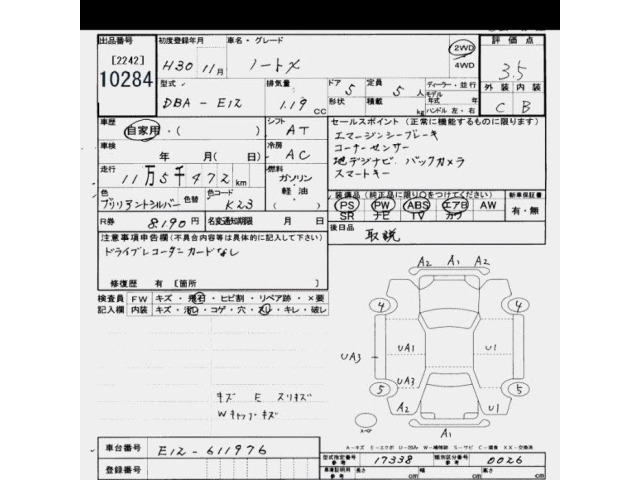 出品番号 初度登録年月 車名・グレード 評価点
[2242] H30 11月 ノートX 2WD 4WD 3.5
10284
型式 排気量 ドア 定員 ディーラー・並行 外装 内装
DBA-E12 1.19 cc 5 5人 モデル 年式 年 C B
形状 積載 kg ハンドル 左・右
車歴 シフト セールスポイント(正常に機能するものに限ります)
自家用・( ) AT エマージンシーブレーキ
車検 冷房 コーナーセンサー
年 月(日) AC 地デジナビ バックカメラ
走行 燃料 スマートキー
11万5千472km ガソリン
軽油
色 色替 色コード 装備品(純正品に限り○をつけてください) 新車保証書
ブリリアントシルバー K23 PS PW ABS エアB AW 有・無
SR ナビ TV カワ
R券 8190円 名変通知期限 月 日 後日品
取説
注意事項申告欄(不具合内容等は具体的に記入して下さい)
ドライブレコーダーカードなし
修復歴 有[箇所 ]
検査員 FW キズ・飛石・ヒビ割・リペア跡・×要
記入欄 内装 キズ・汚れ・コゲ・穴・スレ・キレ・破レ
A2 A1 A2
4 4
UA3 UA1 U1
UA3
5 5
A2 U1
A1
スペア
キズ E スリキズ
Wキャップキズ
A-キズ E-エクボ U-凹み W-補修跡 S-サビ C-腐食 XX-交換済
車台番号 E12-611976
型式指定番号 参考 17338 類別区分番号 参考 0026
登録番号
車庫証明用 参考 長さ cm 幅 cm 高さ cm